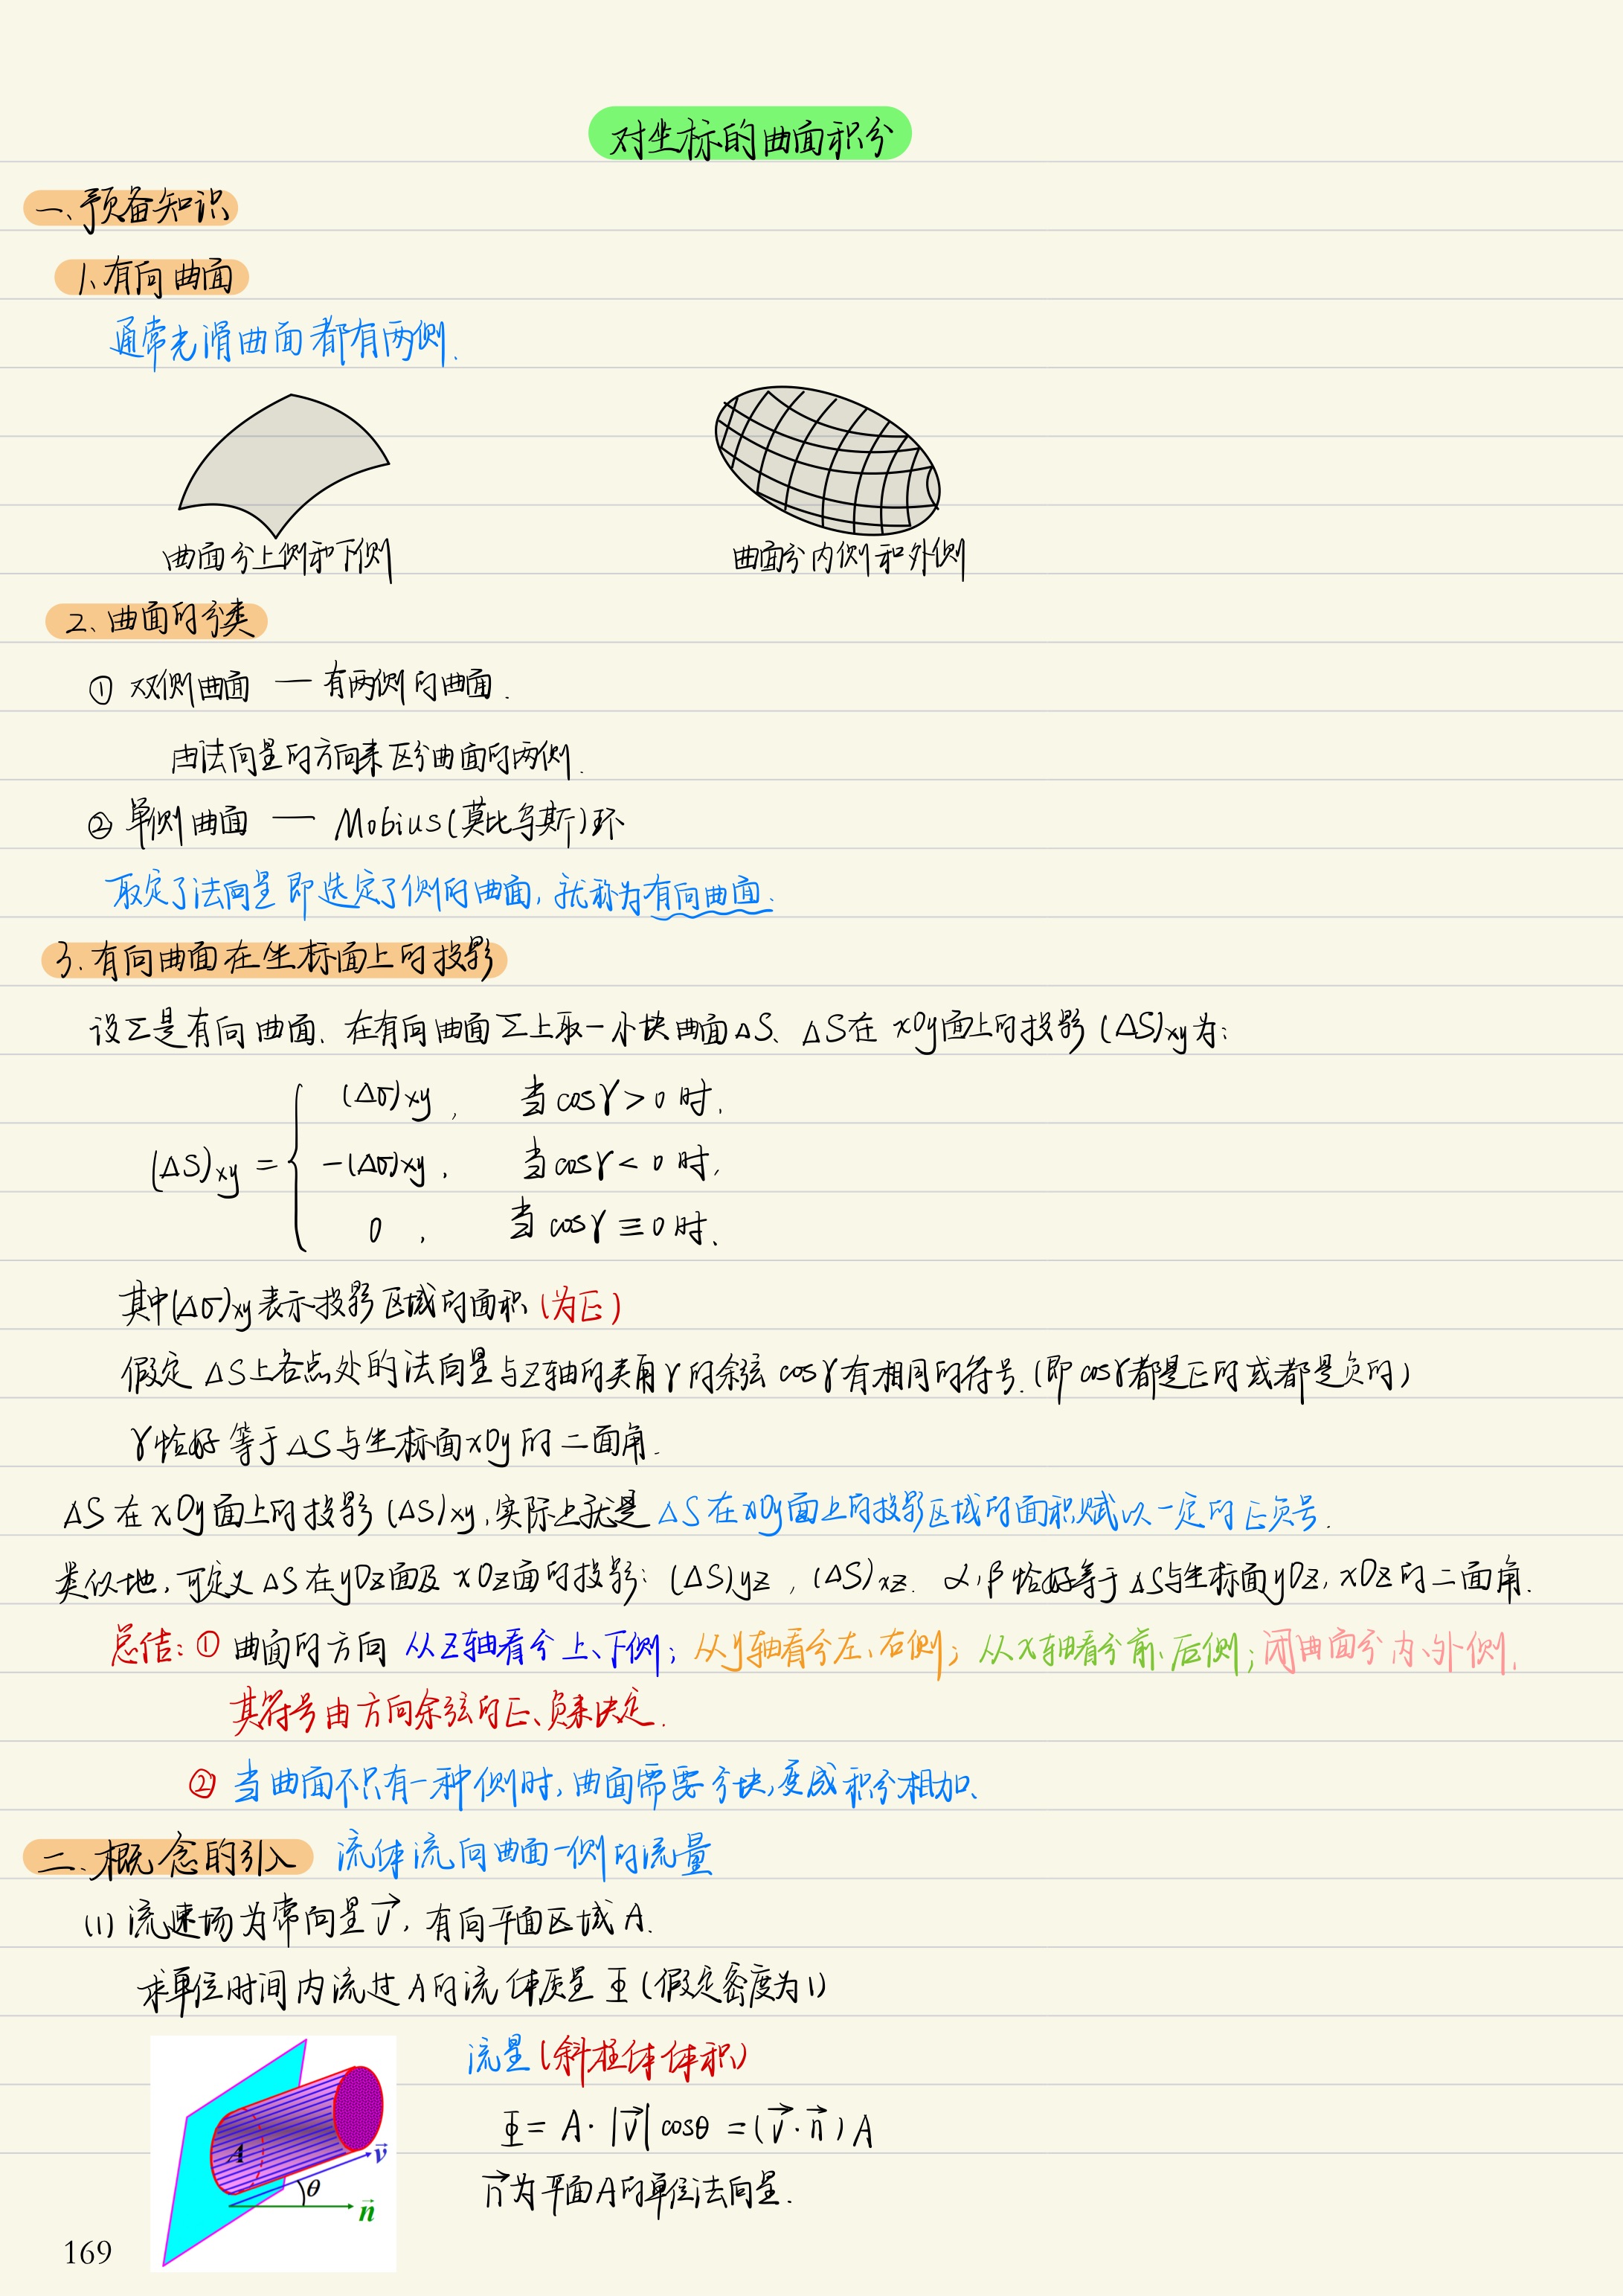 对坐标的曲面积分
一、预备知识
1、有向曲面
通常光滑曲面都有两侧.
曲面分上侧和下侧
曲面分内侧和外侧
2、曲面的分类
① 双侧曲面 — 有两侧的曲面.
由法向量的方向来区分曲面的两侧.
② 单侧曲面 — Mobius(莫比乌斯)环
取定了法向量即选定了侧的曲面,就称为有向曲面.
3.有向曲面在坐标面上的投影
设Σ是有向曲面.在有向曲面Σ上取一小块曲面ΔS、ΔS在xOy面上的投影(ΔS)xy为:
(Δσ)xy, 当cosγ>0时.
(ΔS)xy = { -(Δσ)xy, 当cosγ<0时,
0, 当cosγ≡0时、
其中(Δσ)xy表示投影区域的面积(为正)
假定ΔS上各点处的法向量与z轴的夹角γ的余弦cosγ有相同的符号.(即cosγ都是正的或都是负的)
γ恰好等于ΔS与坐标面xOy的二面角.
ΔS在xOy面上的投影(ΔS)xy,实际上就是ΔS在xOy面上的投影区域的面积赋以一定的正负号.
类似地,可定义ΔS在yOz面及xOz面的投影:(ΔS)yz,(ΔS)xz. α,β恰好等于ΔS与坐标面yOz,xOz的二面角.
总结:① 曲面的方向 从z轴看分上、下侧;从y轴看分左、右侧;从x轴看分前、后侧;闭曲面分内、外侧.
其符号由方向余弦的正、负来决定.
② 当曲面不只有一种侧时,曲面需要分块,变成积分相加、
二、概念的引入 流体流向曲面一侧的流量
(1) 流速场为常向量v⃗,有向平面区域A.
求单位时间内流过A的流体质量Φ(假定密度为1)
流量(斜柱体体积)
Φ=A·|v⃗|cosθ=(v⃗·n⃗)A
n⃗为平面A的单位法向量.
A
v⃗
θ
n⃗
169